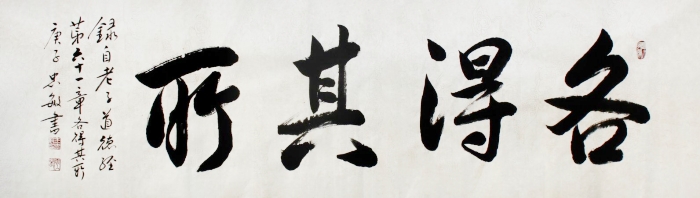 各得其所
錄自老子道德經
第六十一章各得其所
庚子忠敏書